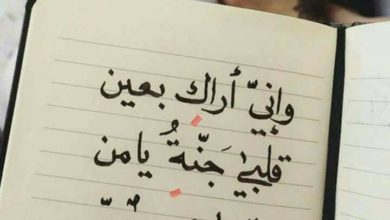 وإنيّ أراك بعين
قلبيْ جَنّةُ يامن